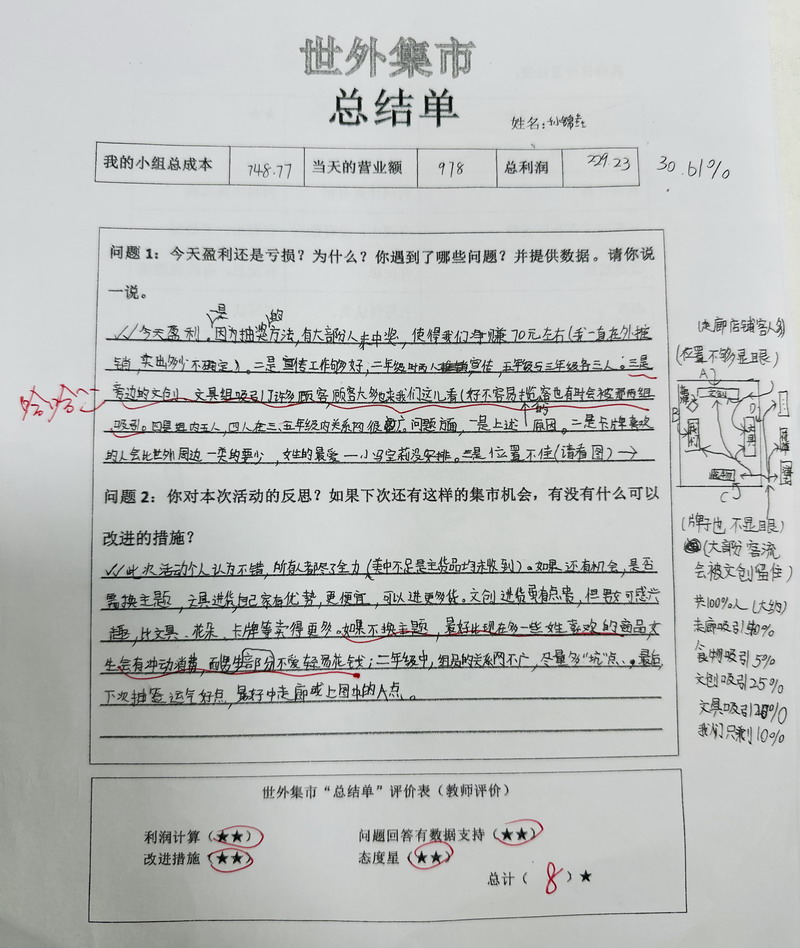 世外集市
总结单
姓名：孙锦
我的小组总成本 748.77 当天的营业额 978 总利润 229.23 30.61%
问题1：今天盈利还是亏损？为什么？你遇到了哪些问题？并提供数据。请你说
一说。
是 的
今天盈利。因为抽奖方法，有大部分人未中奖，使得我们净赚70元左右（我一直在外推
销，卖出多少不确定）。二是宣传工作够好，二年级时两人宣传，五年级与三年级各三人。三是
旁边的文创、文具组吸引了许多顾客，顾客大多也来我们这儿看（好不容易揽客也有时会被那两组
哈哈
吸引。四是组内五人，四人在三、五年级内关系网很广。问题方面，一是上述的原因。二是卡牌喜欢
的人会比世外周边一类的要少，女性的最爱——小马宝莉没安排。三是位置不佳（请看图）→
问题2：你对本次活动的反思？如果下次还有这样的集市机会，有没有什么可以
改进的措施？
此次活动个人认为不错，所有人都尽了全力（美中不足是主货品均未收到）。如果还有机会，是否
需换主题，文具进货自己家有优势，更便宜，可以进更多货。文创进货虽有点贵，但可感兴
趣，比文具、花朵、卡牌等卖得更多。如果不换主题，最好比现在多一些女性喜欢的商品，女
生会有冲动消费，而男生部分不爱轻易花钱；二年级中，组员的关系网不广，尽量多“坑”点。最后，
下次抽签运气好点，最好中走廊或上图中的A点。
（走廊店铺客人多）
（位置不够显眼）
A
B
D
C
（牌子也不显眼）
（大部分客流
会被文创留住）
共100%人（大约）
走廊吸引40%
食物吸引5%
文创吸引25%
文具吸引20%
我们只剩10%
世外集市“总结单”评价表（教师评价）
利润计算（★★） 问题回答有数据支持（★★）
改进措施（★★） 态度星（★★）
总计（8）★